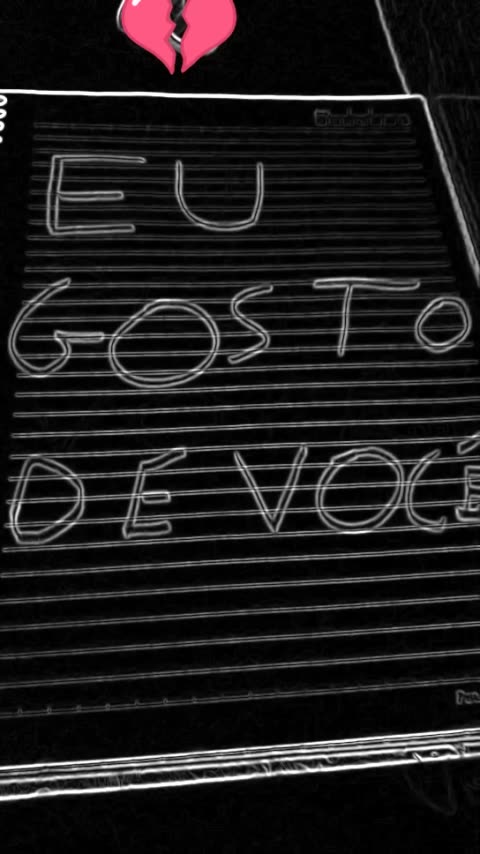 EU
GOSTO
DE VOCÊ